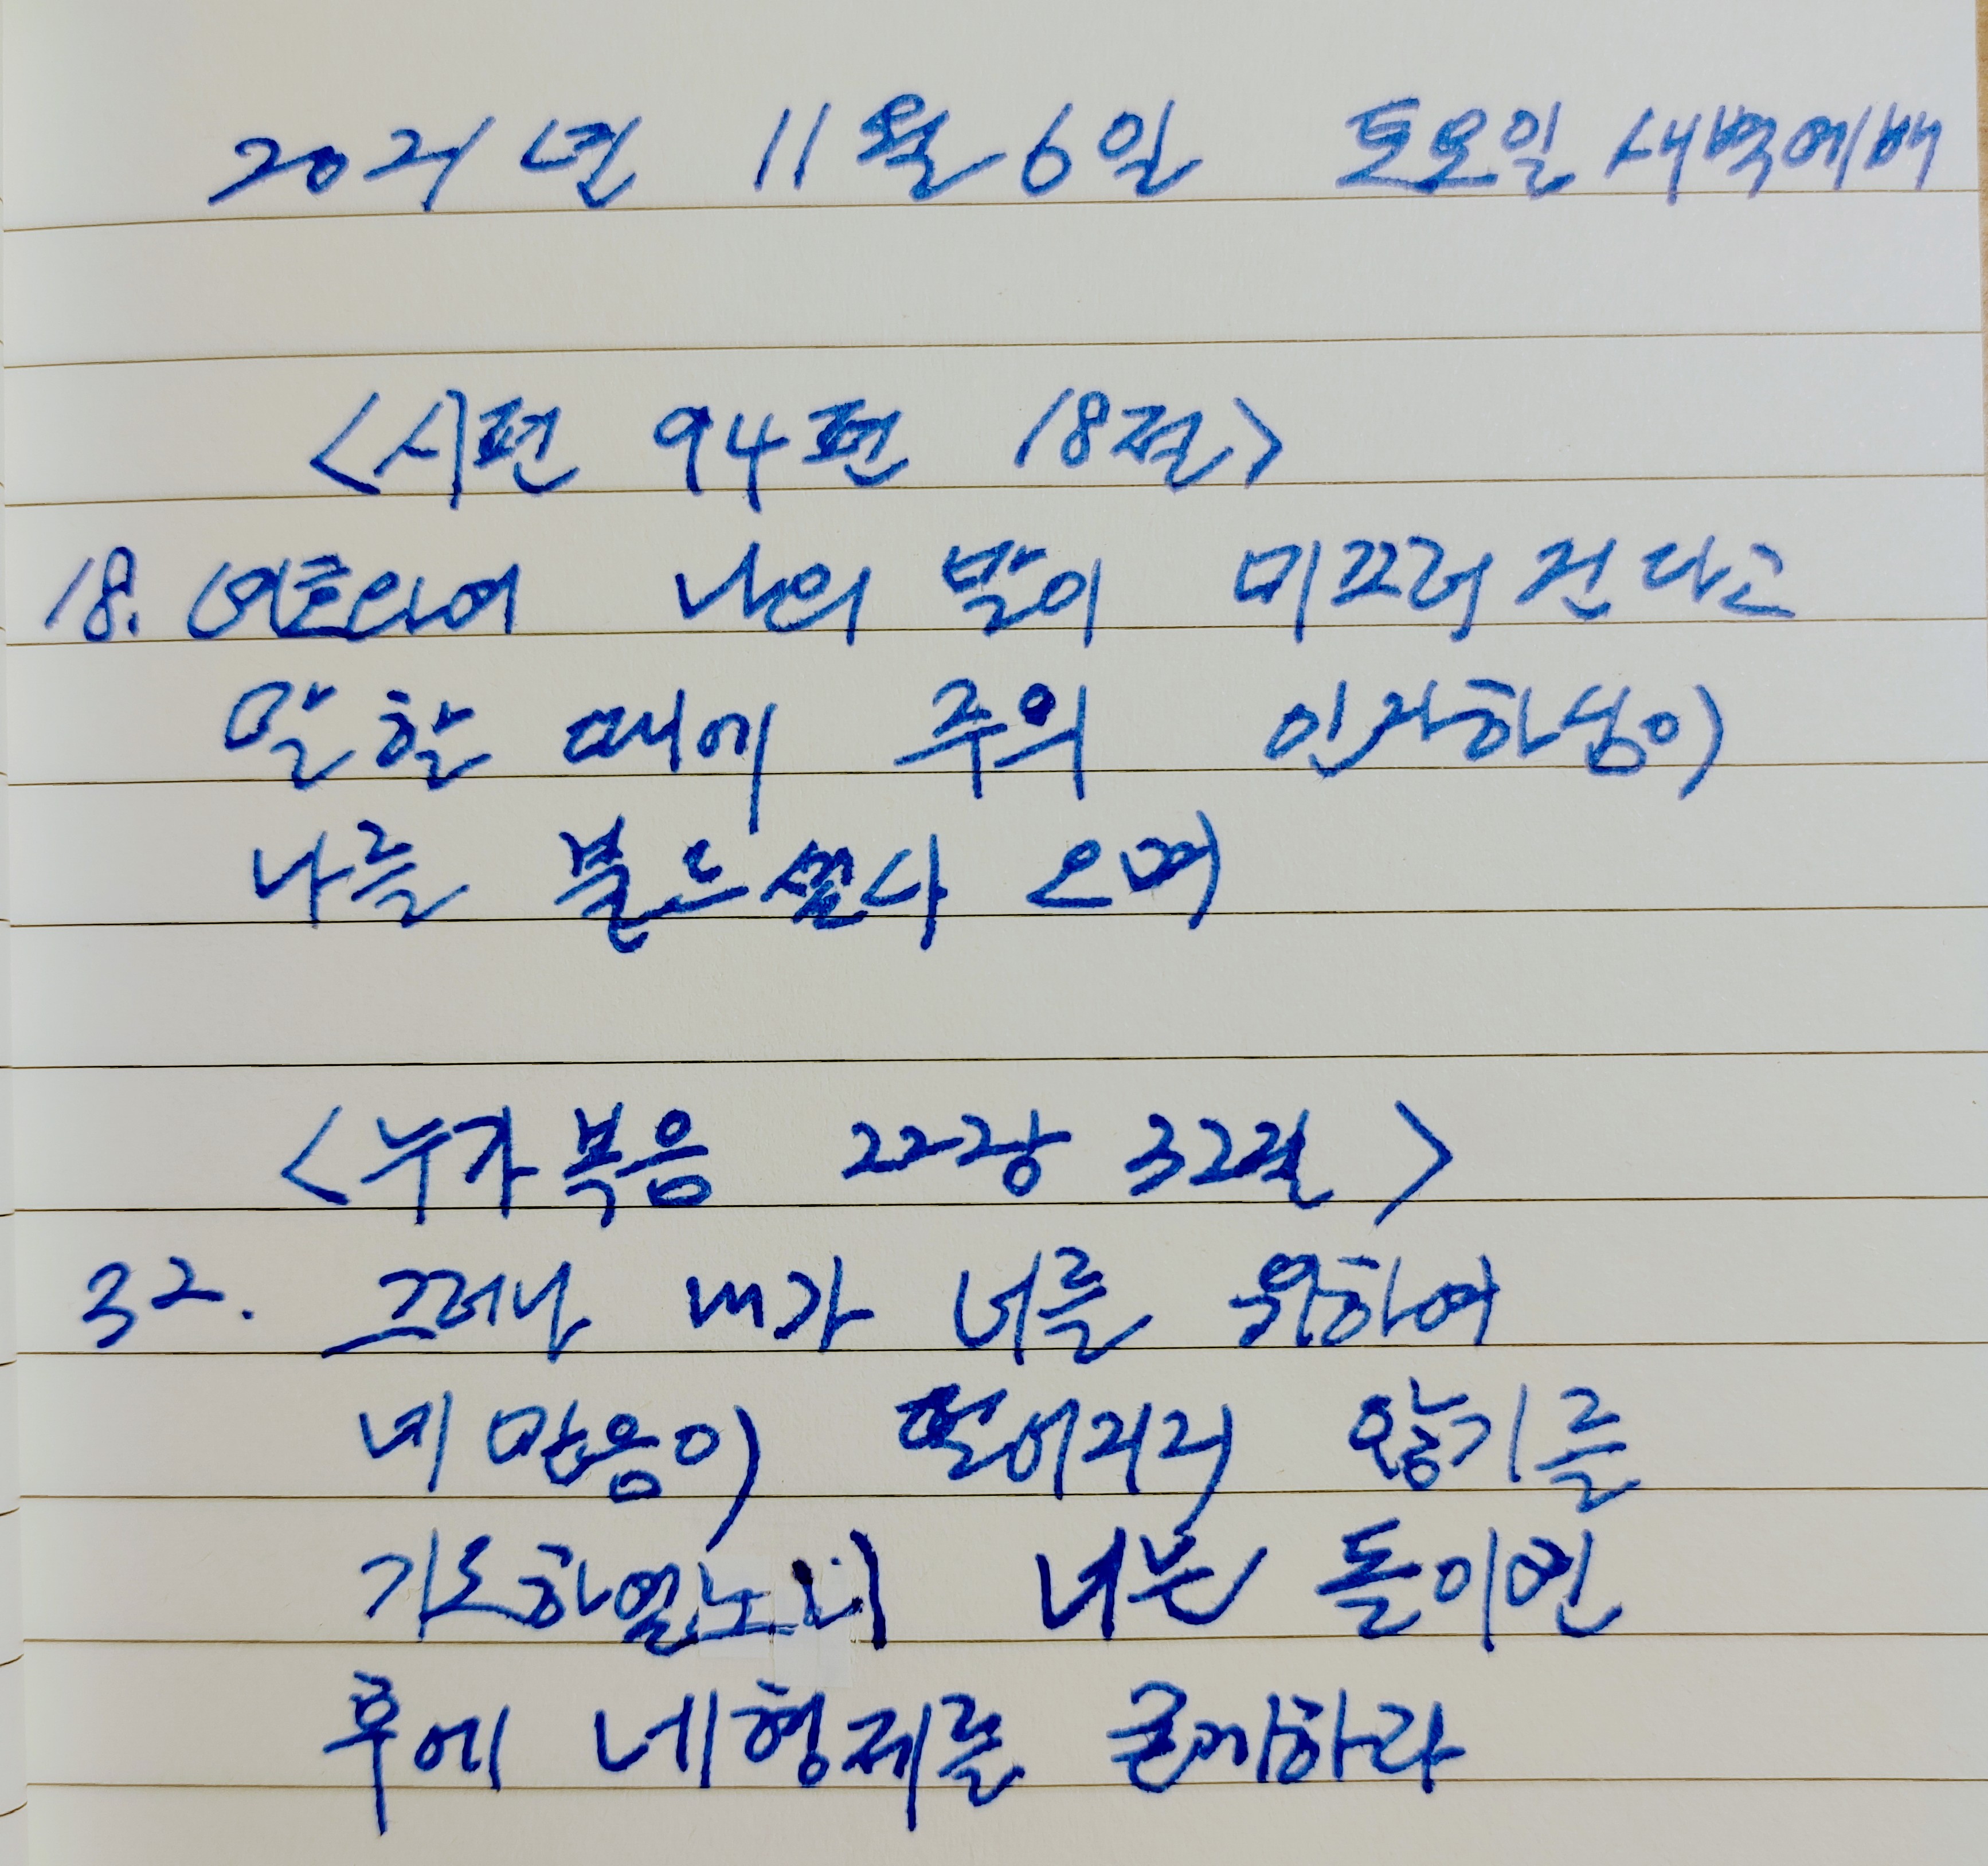 2021년 11월 6일 토요일 새벽예배
<시편 94편 18절>
18. 여호와여 나의 발이 미끄러진다고
말할 때에 주의 인자하심이
나를 붙드셨다 으며
<누가복음 22장 32절>
32. 그러나 내가 너를 위하여
네 믿음이 떨어지지 않기를
기도하였노니 너는 돌이킨
후에 네 형제를 굳게하라